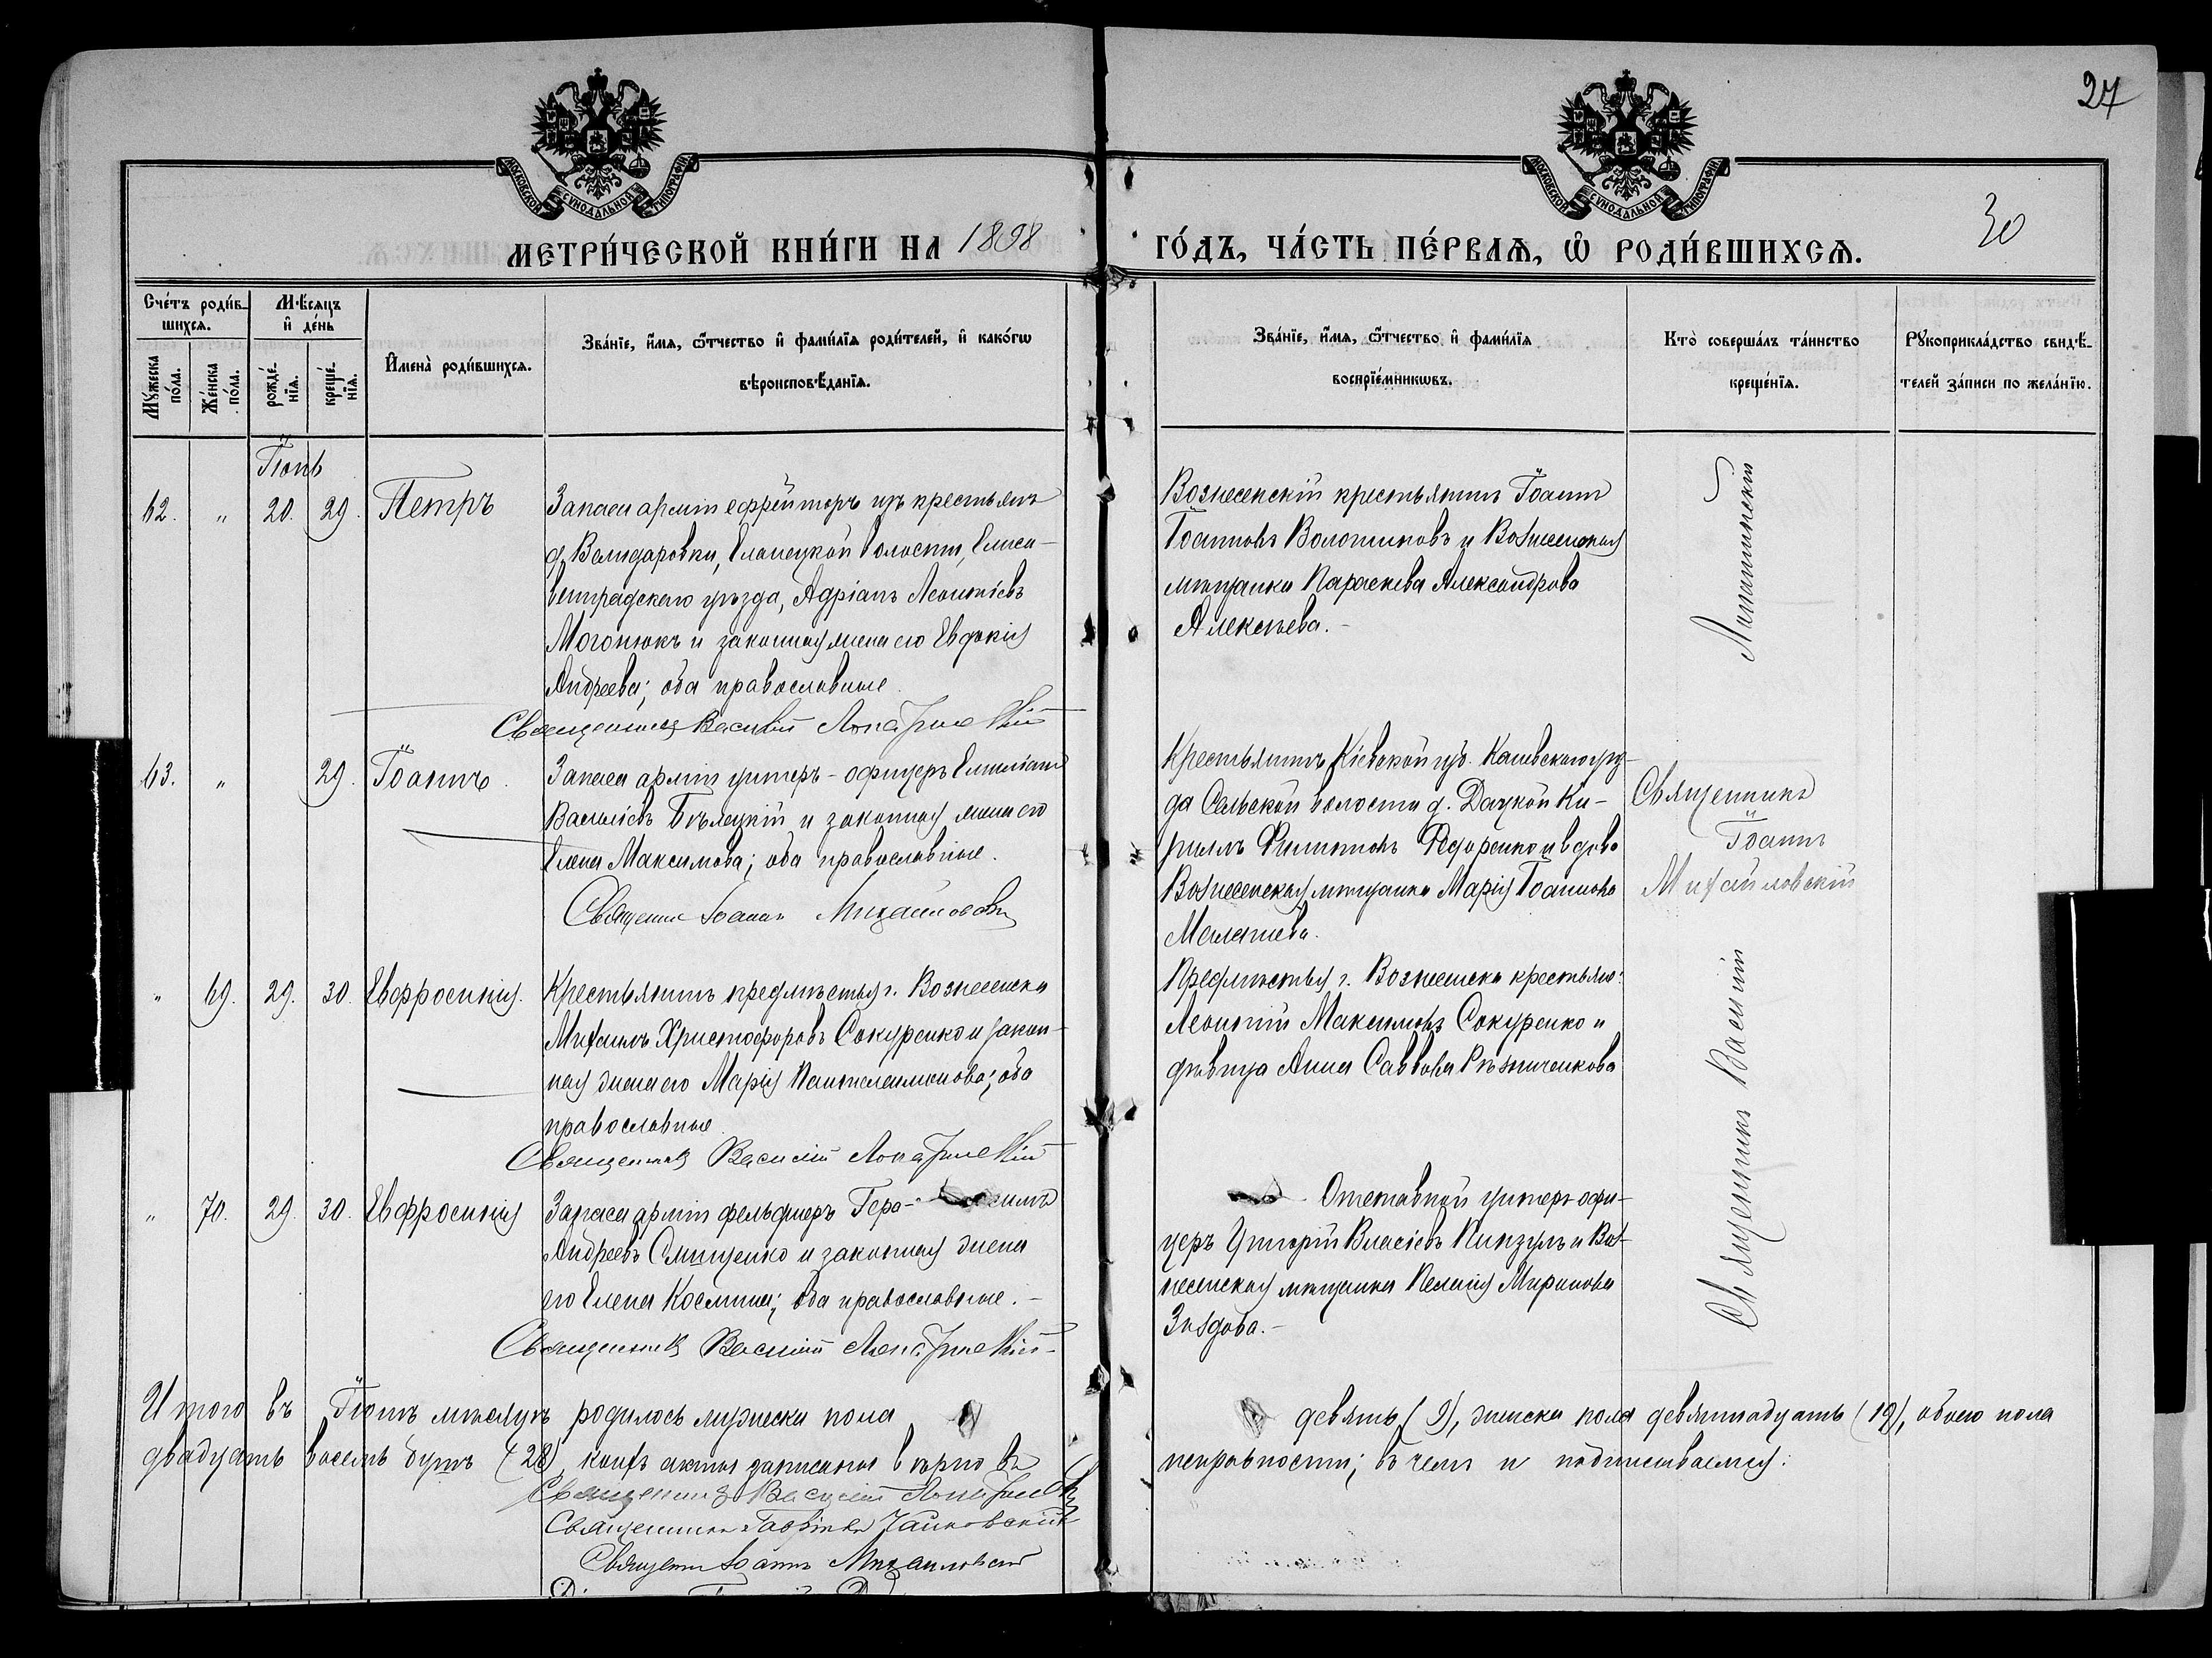 27
30
МОСКОВСКОЙ СУНОДАЛЬНОЙ ТИПОГРАФІИ
МОСКОВСКОЙ СУНОДАЛЬНОЙ ТИПОГРАФІИ
МЕТРИ́ЧЕСКОЙ КНИ́ГИ НА 1898
ГО́ДЪ, ЧА́СТЬ ПЕ́РВАѦ, Ѡ҆ РОДИ́ВШИХСѦ.
Сче́тъ роди́в-
шихсѧ.
Мѣ́сѧцъ
и҆ де́нь
Мꙋ́жеска по́ла.
Же́нска по́ла.
рожде́нїѧ.
креще́нїѧ.
И҆мена̀ роди́вшихсѧ.
Зва́нїе, и҆́мѧ, ѻ҆́тчество и҆ фами́лїѧ роди́телей, и҆ како́гѡ
вѣроисповѣ́данїѧ.
Зва́нїе, и҆́мѧ, ѻ҆́тчество и҆ фами́лїѧ
воспрїе́мникѡвъ.
Кто̀ соверша́лъ та́инство
креще́нїѧ.
Рꙋкоприкла́дство свидѣ́-
телей за́писи по жела́нїю.
Іюнь
62. " 20. 29. Петръ
Запаса арміи ефрейторъ изъ крестьянъ
д. Велидаровки, Еланецкой волости, Елиса-
ветградскаго уѣзда, Адріанъ Леонтіевъ
Могонюкъ и законная жена его Евдокія
Андреева; оба православные.
Священникъ Василій
Вознесенскій крестьянинъ Іоаннъ
Іоанновъ Волошиковъ и Вознесенская
мѣщанка Параскева Александрова
Алексѣева.-
63. " 29. Іоаннъ.
Запаса арміи унтеръ-офицеръ Емиліанъ
Васильевъ Бѣлецкій и законная жена его
Елена Максимова; оба православные.
Священник Іоаннъ Михайловскій
Крестьянинъ Кіевской губ. Каневскаго уѣз-
да Сельской волости д. Дацкой Ки-
риллъ Филипповъ Федоренко и вдова
Вознесенская мѣщанка Марія Іоаннова
Малашева.
Священникъ
Іоаннъ
Михайловскій
" 69. 29. 30. Евфросинія.
Крестьянинъ предмѣстья г. Вознесенска
Михаилъ Христофоровъ Сокуренко и закон-
ная жена его Марія Пантелеимонова; оба
православные.
Священникъ Василій
Предмѣстья г. Вознесенска крестьян:
Леонтій Максимовъ Сокуренко и
дѣвица Анна Саввова Рѣзниченкова
" 70. 29. 30. Евфросинія
Запаса арміи фельдшеръ Гера- симъ
Андреевъ Смищенко и законная жена
его Елена Космина; оба православные.-
Священникъ Василій
Отставной унтеръ-офи-
церъ Григорій Власіевъ Пинзулъ и Воз-
несенская мѣщанка Пелагія Миронова
Зиздова.-
Священникъ Василій
Итого въ Іюнѣ мѣсяцѣ родилось мужеска пола
девять (9), женска пола девятнадцать (19), обоего пола
двадцать восемь душъ (28), коихъ акты записаны вѣрно въ
исправности; въ чемъ и подписываемся:
Священникъ Василій
Священникъ Чайковскій
Священникъ Іоаннъ Михайловскій